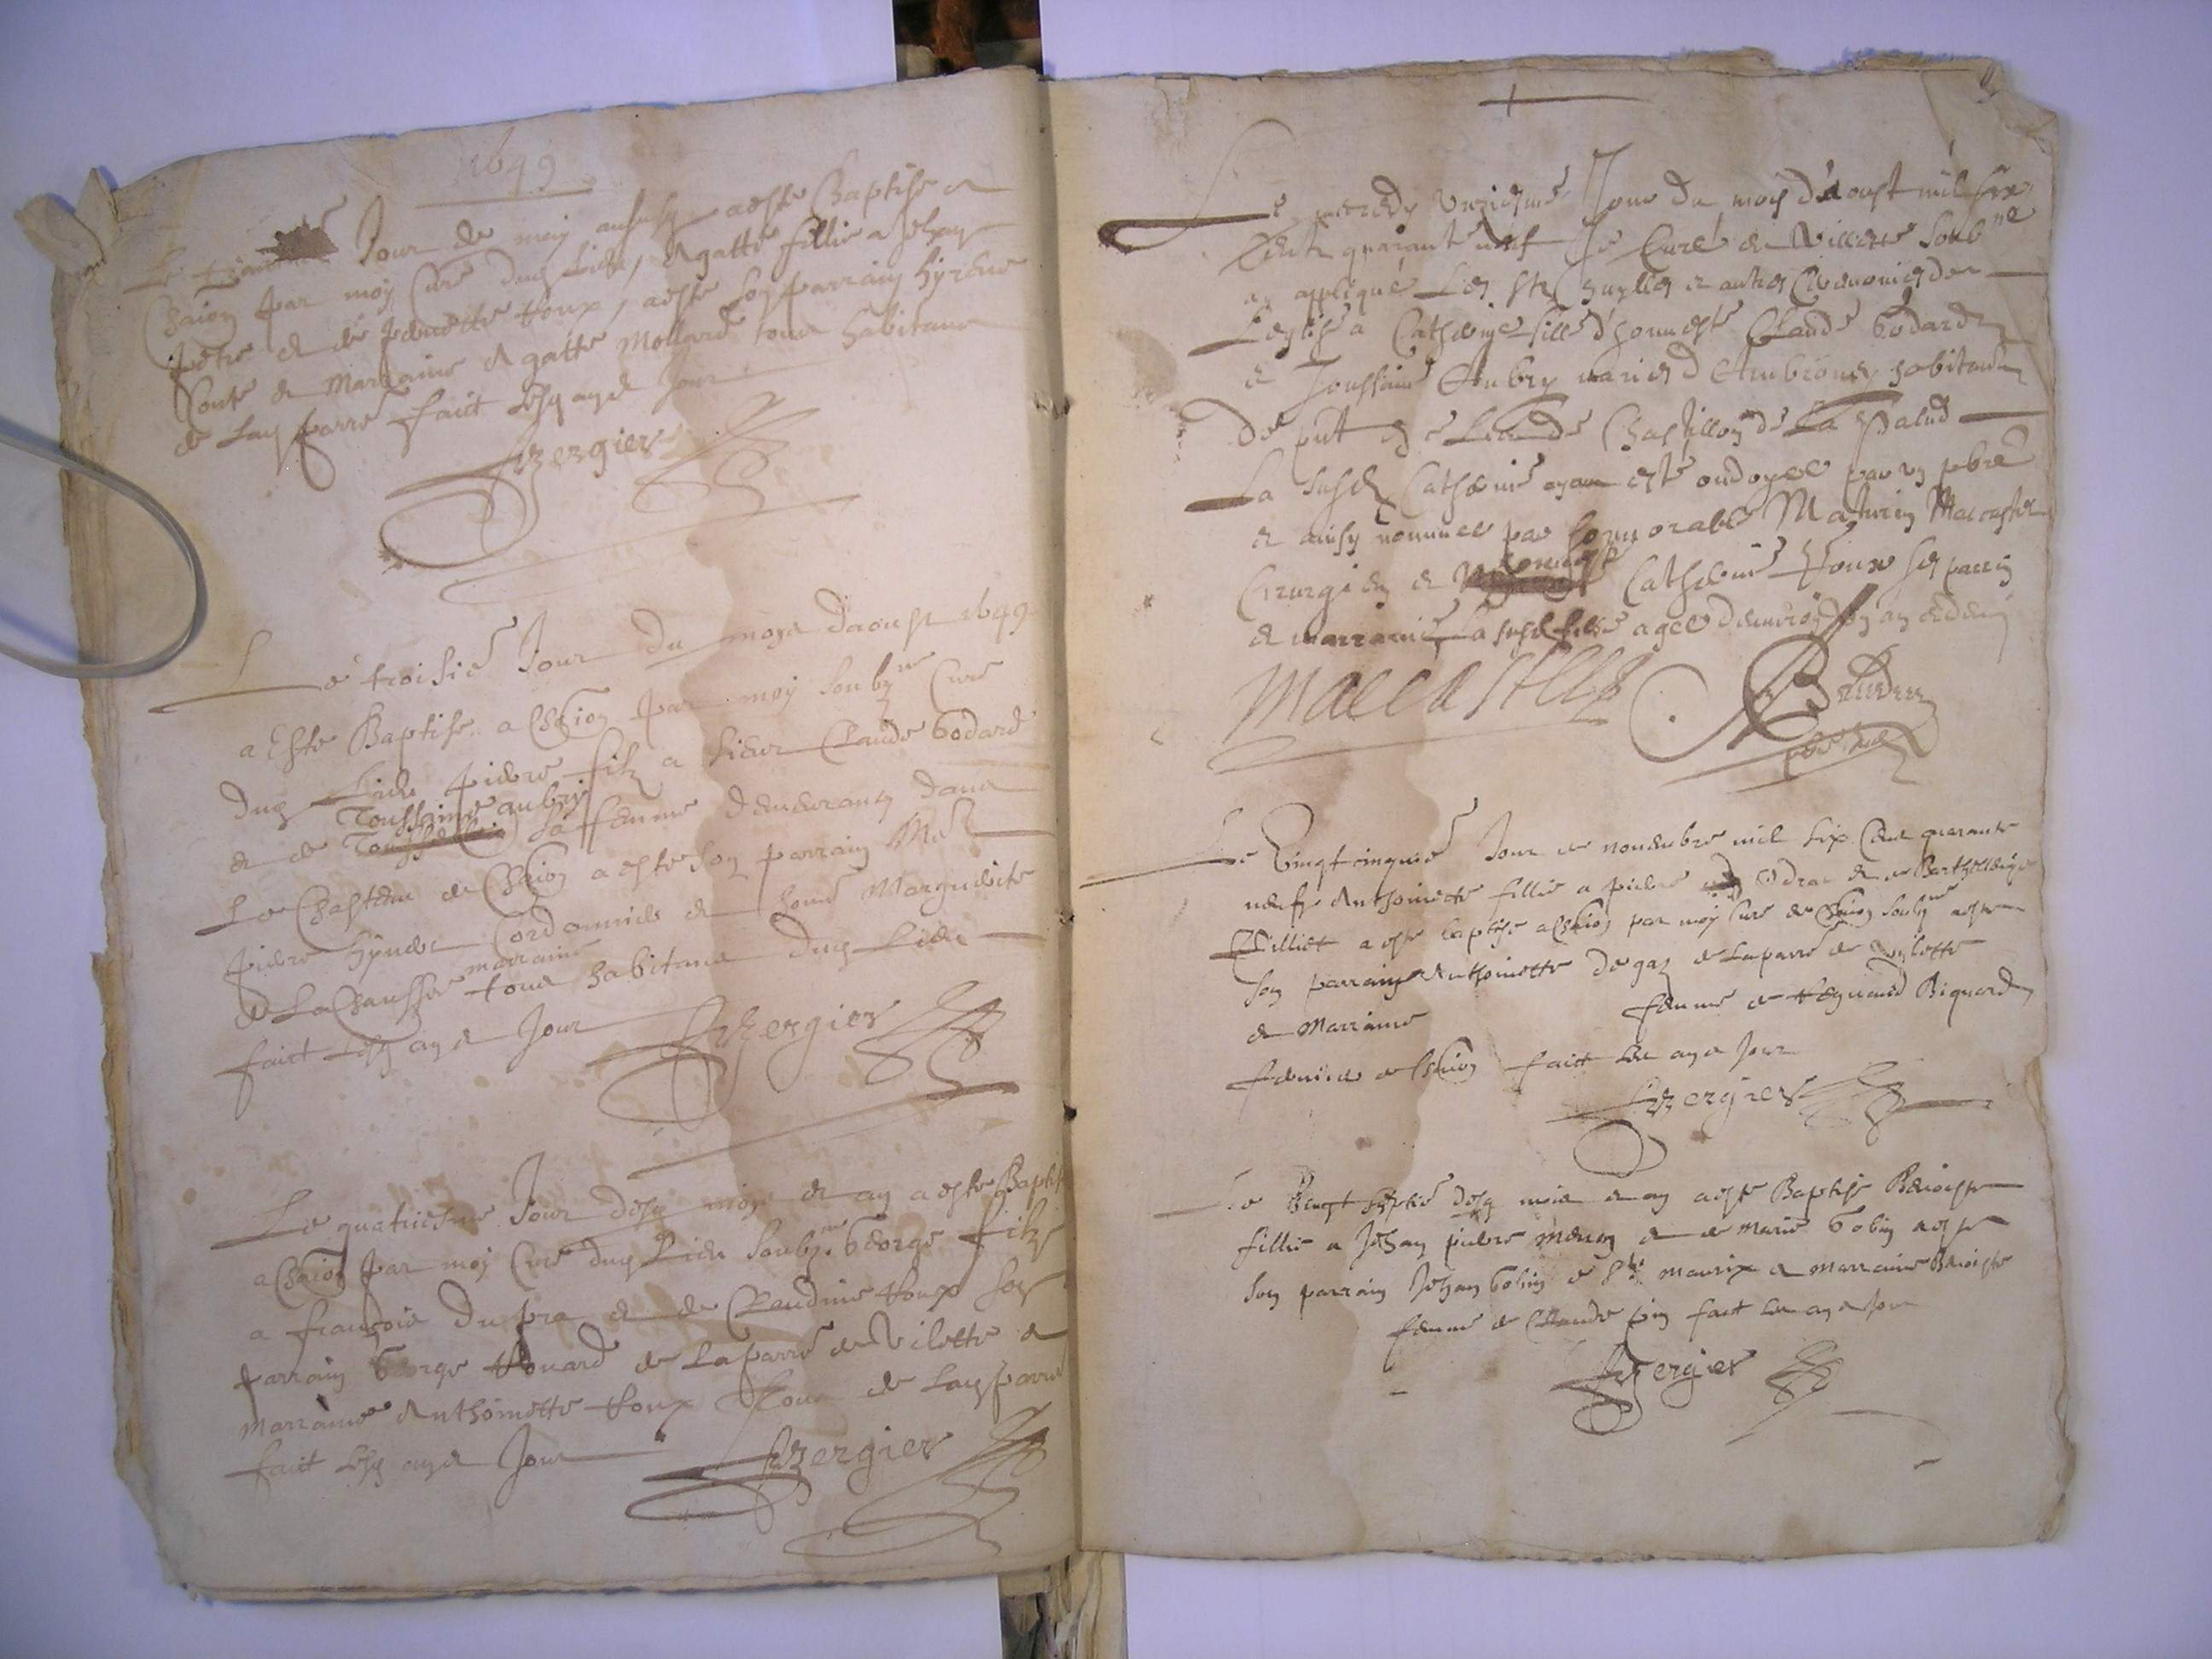 1649
Jour de may aussy a este Baptise a
Chaion par moy Curé dud Lieu, Agatte fillie a Jehan
petre et de pernette Houx, a este son parrain hyrene
et Marraine Agatte Mollard tous habitans
de Lad parre faict lesd an et Jour
Bergier
Le troisie Jour du moys daoust 1649
a Este Baptise a Chaion par moy soubzne Curé
dud Lieu piere filz a sieur Claude Godard
et de Toussaine aubry sa femme demeurans dans
Le Chasteau de Chaion a este son parrain Me
piere Cordonnier et hone Marguerite
de La Chaussee marraine tous habitans dud Lieu
faict lesd an et Jour
Bergier
Le quatriesme Jour desd moys et an a este Baptise
a Chaion par moy Curé dud Lieu soubzne George filz
a françois Dupra et de Claudine Houx son
parrain George Houard de La parre de Vilette et
marraine Anthoinette Houx tous de Lad parre
faict lesd an et Jour
Bergier
Le mecredy unziesme Jour du moys d'aoust mil six
Cent quarante neuf Je Curé de Villette soub ne
ay appliqué Les stes huylles et autres Ceremonies de
L'eglise a Catherine fille d'honneste Claude Godard
et Toussaine Aubry mariés d'Ambronay habitans
de put en Lieu de Chastillon de La Palud
La susd Catherine ayant esté ondoyee par un pbre
et ainsy nommee par honnorable Maturin Malcastel
Cirurgien et honneste Catherine Houx ses parrin
et marraine La susd fille agee d'environ un an et demy
Malcastel
Le Vingt cinquie Jour de novembre mil six Cent quarante
neufz Anthoinette fillie a piere Odrac et de Barthelemye
Pilliet a este baptise a Chaion par moy Curé de Chaion soubzne a este
son parrain Anthoinette de La parre de Vilette
et Marraine femme de Biguard
femme de Chaion faict les an et Jour
Bergier
Le Vingt septie desd mois et an a este Baptise Benoiste
fillie a Jehan piere meny et de Marie Gobin a este
son parrain Jehan Gobin de St maurix et marraine Benoiste
femme de Claude faict les an et Jour
Bergier